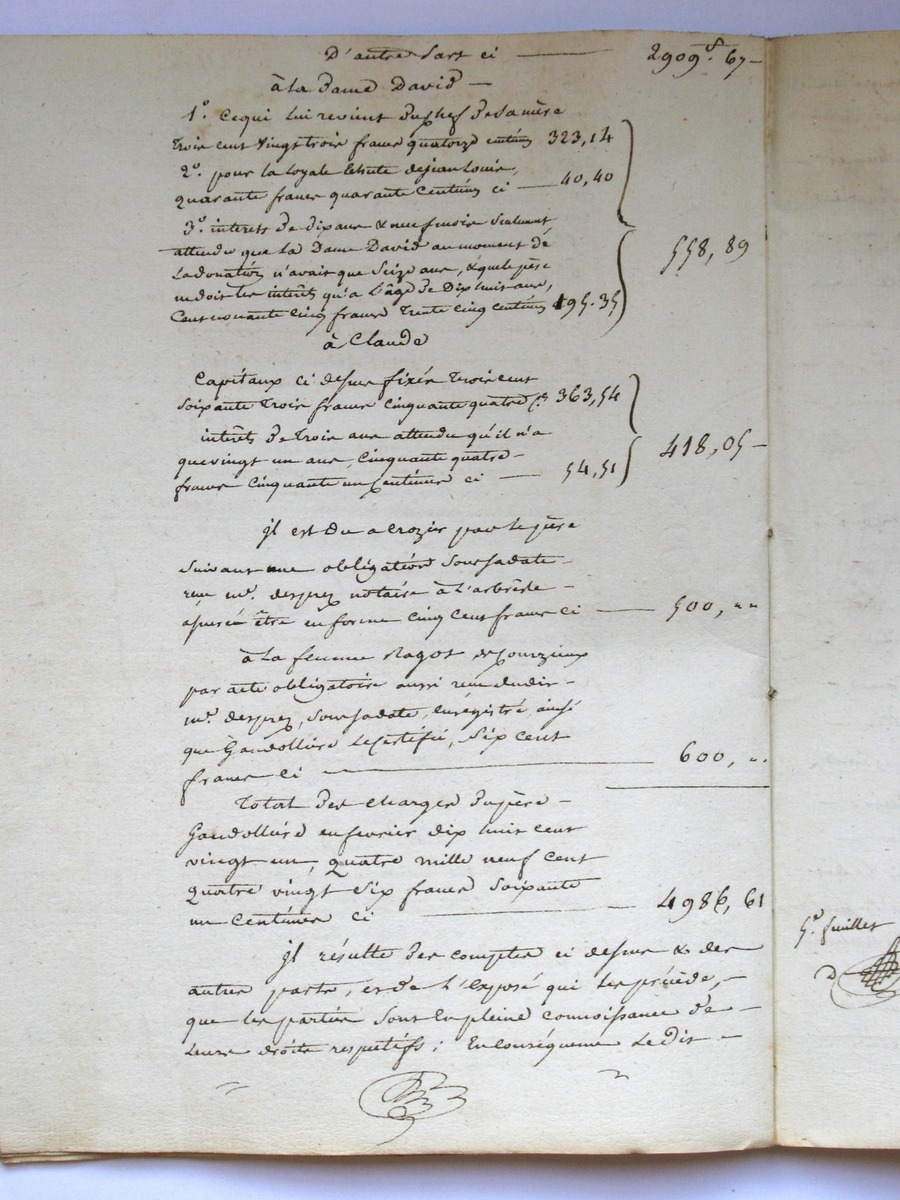 D'autre part ci — 2909f. 67 —
à la Dame David —
1°. ce qui lui revient du chef de sa mère
trois cent vingt trois francs quatorze centimes 323,14
2°. pour la loyale échute de jean Louis,
quarante francs quarante centimes ci — 40,40
3°. intérets de dix ans & neuf mois seulement
attendu que la Dame David au moment de
la donation n'avait que seize ans, & que le père
ne doit les intérêts qu'a l'âge de dix huit ans,
Cent nonante cinq francs trente cinq centimes 195.35
558,89
à Claude
Capitaux ci dessus fixés trois cent
soixante trois francs cinquante quatre c.es 363,54
intérêts de trois ans attendu qu'il n'a
que vingt un ans, cinquante quatre —
francs cinquante un centimes ci — 54,51
418,05 —
il est du a crozier par le père
suivant une obligation sous sa date —
reçu me. desprez notaire à l'arbrêsle —
assurée être en forme cinq cent francs ci — 500, „ „
à la femme Ragot de Courzieux
par acte obligatoire aussi reçu du dit —
me. desprez, sous sa date, enregistré, ainsi
que Gaudollière le certifie, six cent
francs ci — 600, „ .
Total des charges du père —
Gaudollière en fevrier dix huit cent
vingt un, quatre mille neuf cent
quatre vingt six francs soixante
un centimes ci — 4986, 61
il résulte des comptes ci dessus & des
autres parts, et de l'exposé qui les précède, —
que les parties sont en pleine connoissance de —
leurs droits respectifs; En conséquence le dit —
5e. feuillet